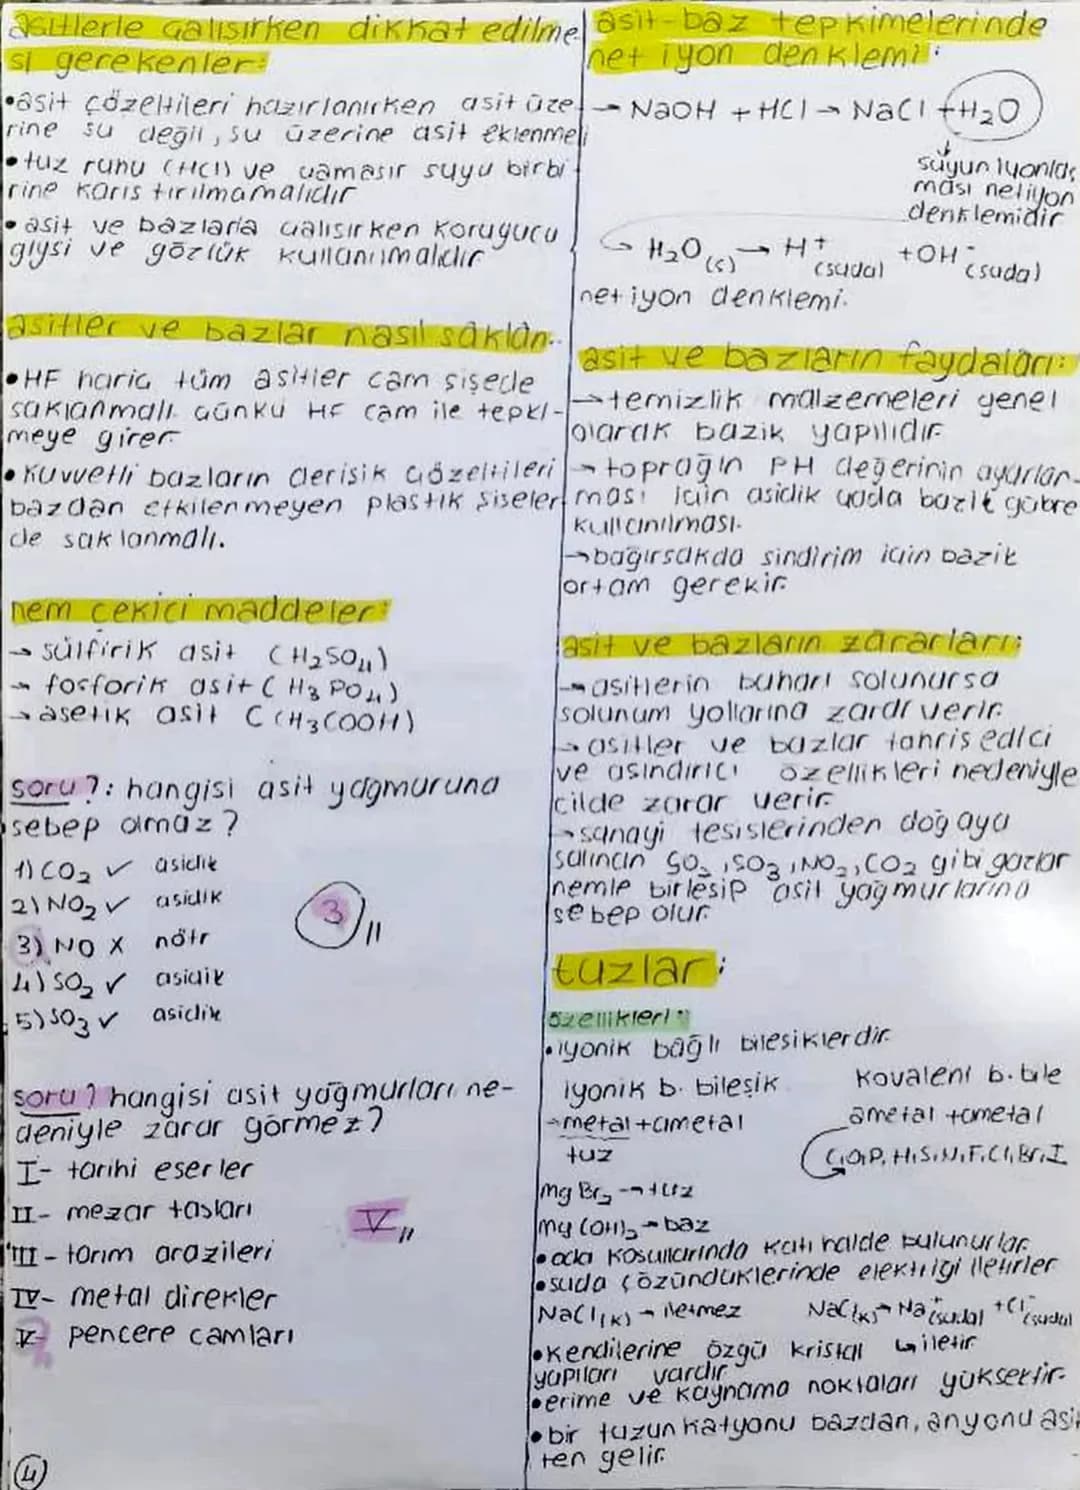 asitlerle çalışırken dikkat edilme
si gerekenler:
•asit çözeltileri hazırlanırken asit üze
rine su değil, su üzerine asit eklenmeli
•tuz ruhu (HCl) ve çamaşır suyu birbi
rine karıştırılmamalıdır
•asit ve bazlarla çalışırken koruyucu
giysi ve gözlük kullanılmalıdır
asitler ve bazlar nasıl saklan..
•HF hariç tüm asitler cam şişede
saklanmalı. Çünkü HF cam ile tepki-
meye girer.
•Kuvvetli bazların derişik çözeltileri
bazdan etkilenmeyen plastik şişeler
de saklanmalı.
nem çekici maddeler:
→ sülfirik asit (H2SO4)
→ fosforik asit (H3PO4)
→ asetik asit (CH3COOH)
soru?: hangisi asit yağmuruna
sebep olmaz?
1) CO2 ✓ asidik
2) NO2 ✓ asidik
3) NO X nötr
4) SO2 ✓ asidik
5) SO3 ✓ asidik
3 //
soru? hangisi asit yağmurları ne-
deniyle zarar görmez?
I- tarihi eserler
II- mezar taşları
III- tarım arazileri
IV- metal direkler
V- pencere camları
V //
4
asit-baz tepkimelerinde
net iyon denklemi:
→ NaOH + HCl → NaCl + H2O
suyun iyonlaş
ması net iyon
denklemidir
→ H2O(s) → H+(suda) + OH-(suda)
net iyon denklemi.
asit ve bazların faydaları:
→temizlik malzemeleri genel
olarak bazik yapılıdır.
→toprağın PH değerinin ayarlan-
ması için asidik yada bazik gübre
kullanılması.
→bağırsakda sindirim için bazik
ortam gerekir.
asit ve bazların zararları:
→asitlerin buharı solunursa
solunum yollarına zarar verir.
→asitler ve bazlar tahriş edici
ve aşındırıcı özellikleri nedeniyle
cilde zarar verir.
→sanayi tesislerinden doğaya
salınan SO2, SO3, NO2, CO2 gibi gazlar
nemle birleşip asit yağmurlarına
sebep olur.
tuzlar:
özellikleri:
•iyonik bağlı bileşiklerdir.
iyonik b. bileşik kovalent b. bile
→metal+ametal ametal+ametal
tuz C,O,P,H,S,N,F,Cl,Br,I
MgBr2 → tuz
Mg(OH)2 → baz
•oda koşullarında katı halde bulunurlar.
•suda çözündüklerinde elektriği iletirler
NaCl(k) → iletmez NaCl(k) → Na+(suda) + Cl-(suda)
•kendilerine özgü kristal ↳ iletir
yapıları vardır
•erime ve kaynama noktaları yüksektir.
•bir tuzun katyonu bazdan, anyonu asit
ten gelir.